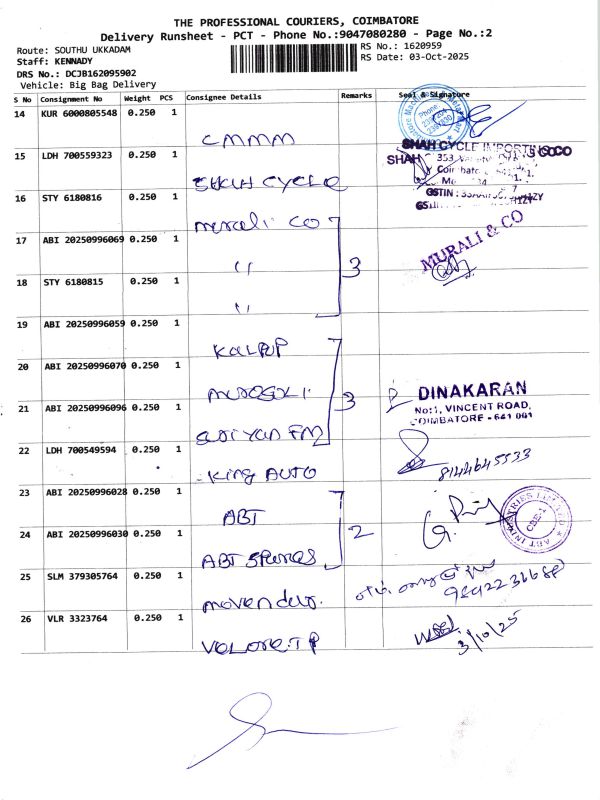 THE PROFESSIONAL COURIERS, COIMBATORE
Delivery Runsheet - PCT - Phone No.:9047080280 - Page No.:2
Route: SOUTHU UKKADAM
RS No.: 1620959
Staff: KENNADY
RS Date: 03-Oct-2025
DRS No.: DCJB162095902
Vehicle: Big Bag Delivery
S No Consignment No Weight PCS Consignee Details Remarks Seal & Signature
14 KUR 6000805548 0.250 1
CMMM
15 LDH 700559323 0.250 1
SHAH CYCLE
SHAH CYCLE IMPORTING CO
16 STY 6180816 0.250 1
murali co
17 ABI 20250996069 0.250 1
"
3
MURALI & CO
18 STY 6180815 0.250 1
"
19 ABI 20250996059 0.250 1
KALPUP
20 ABI 20250996070 0.250 1
MUROSOLI
3
DINAKARAN
No:1, VINCENT ROAD,
COIMBATORE - 641 001
21 ABI 20250996096 0.250 1
SURIYAN FM
22 LDH 700549594 0.250 1
King AUTO
8144645533
23 ABI 20250996028 0.250 1
ABT
ABT INDUSTRIES LIMITED
CBE-1
24 ABI 20250996030 0.250 1
2
ABT SPARES
25 SLM 379305764 0.250 1
movendar.
26 VLR 3323764 0.250 1
VELORE.TP
3/10/25